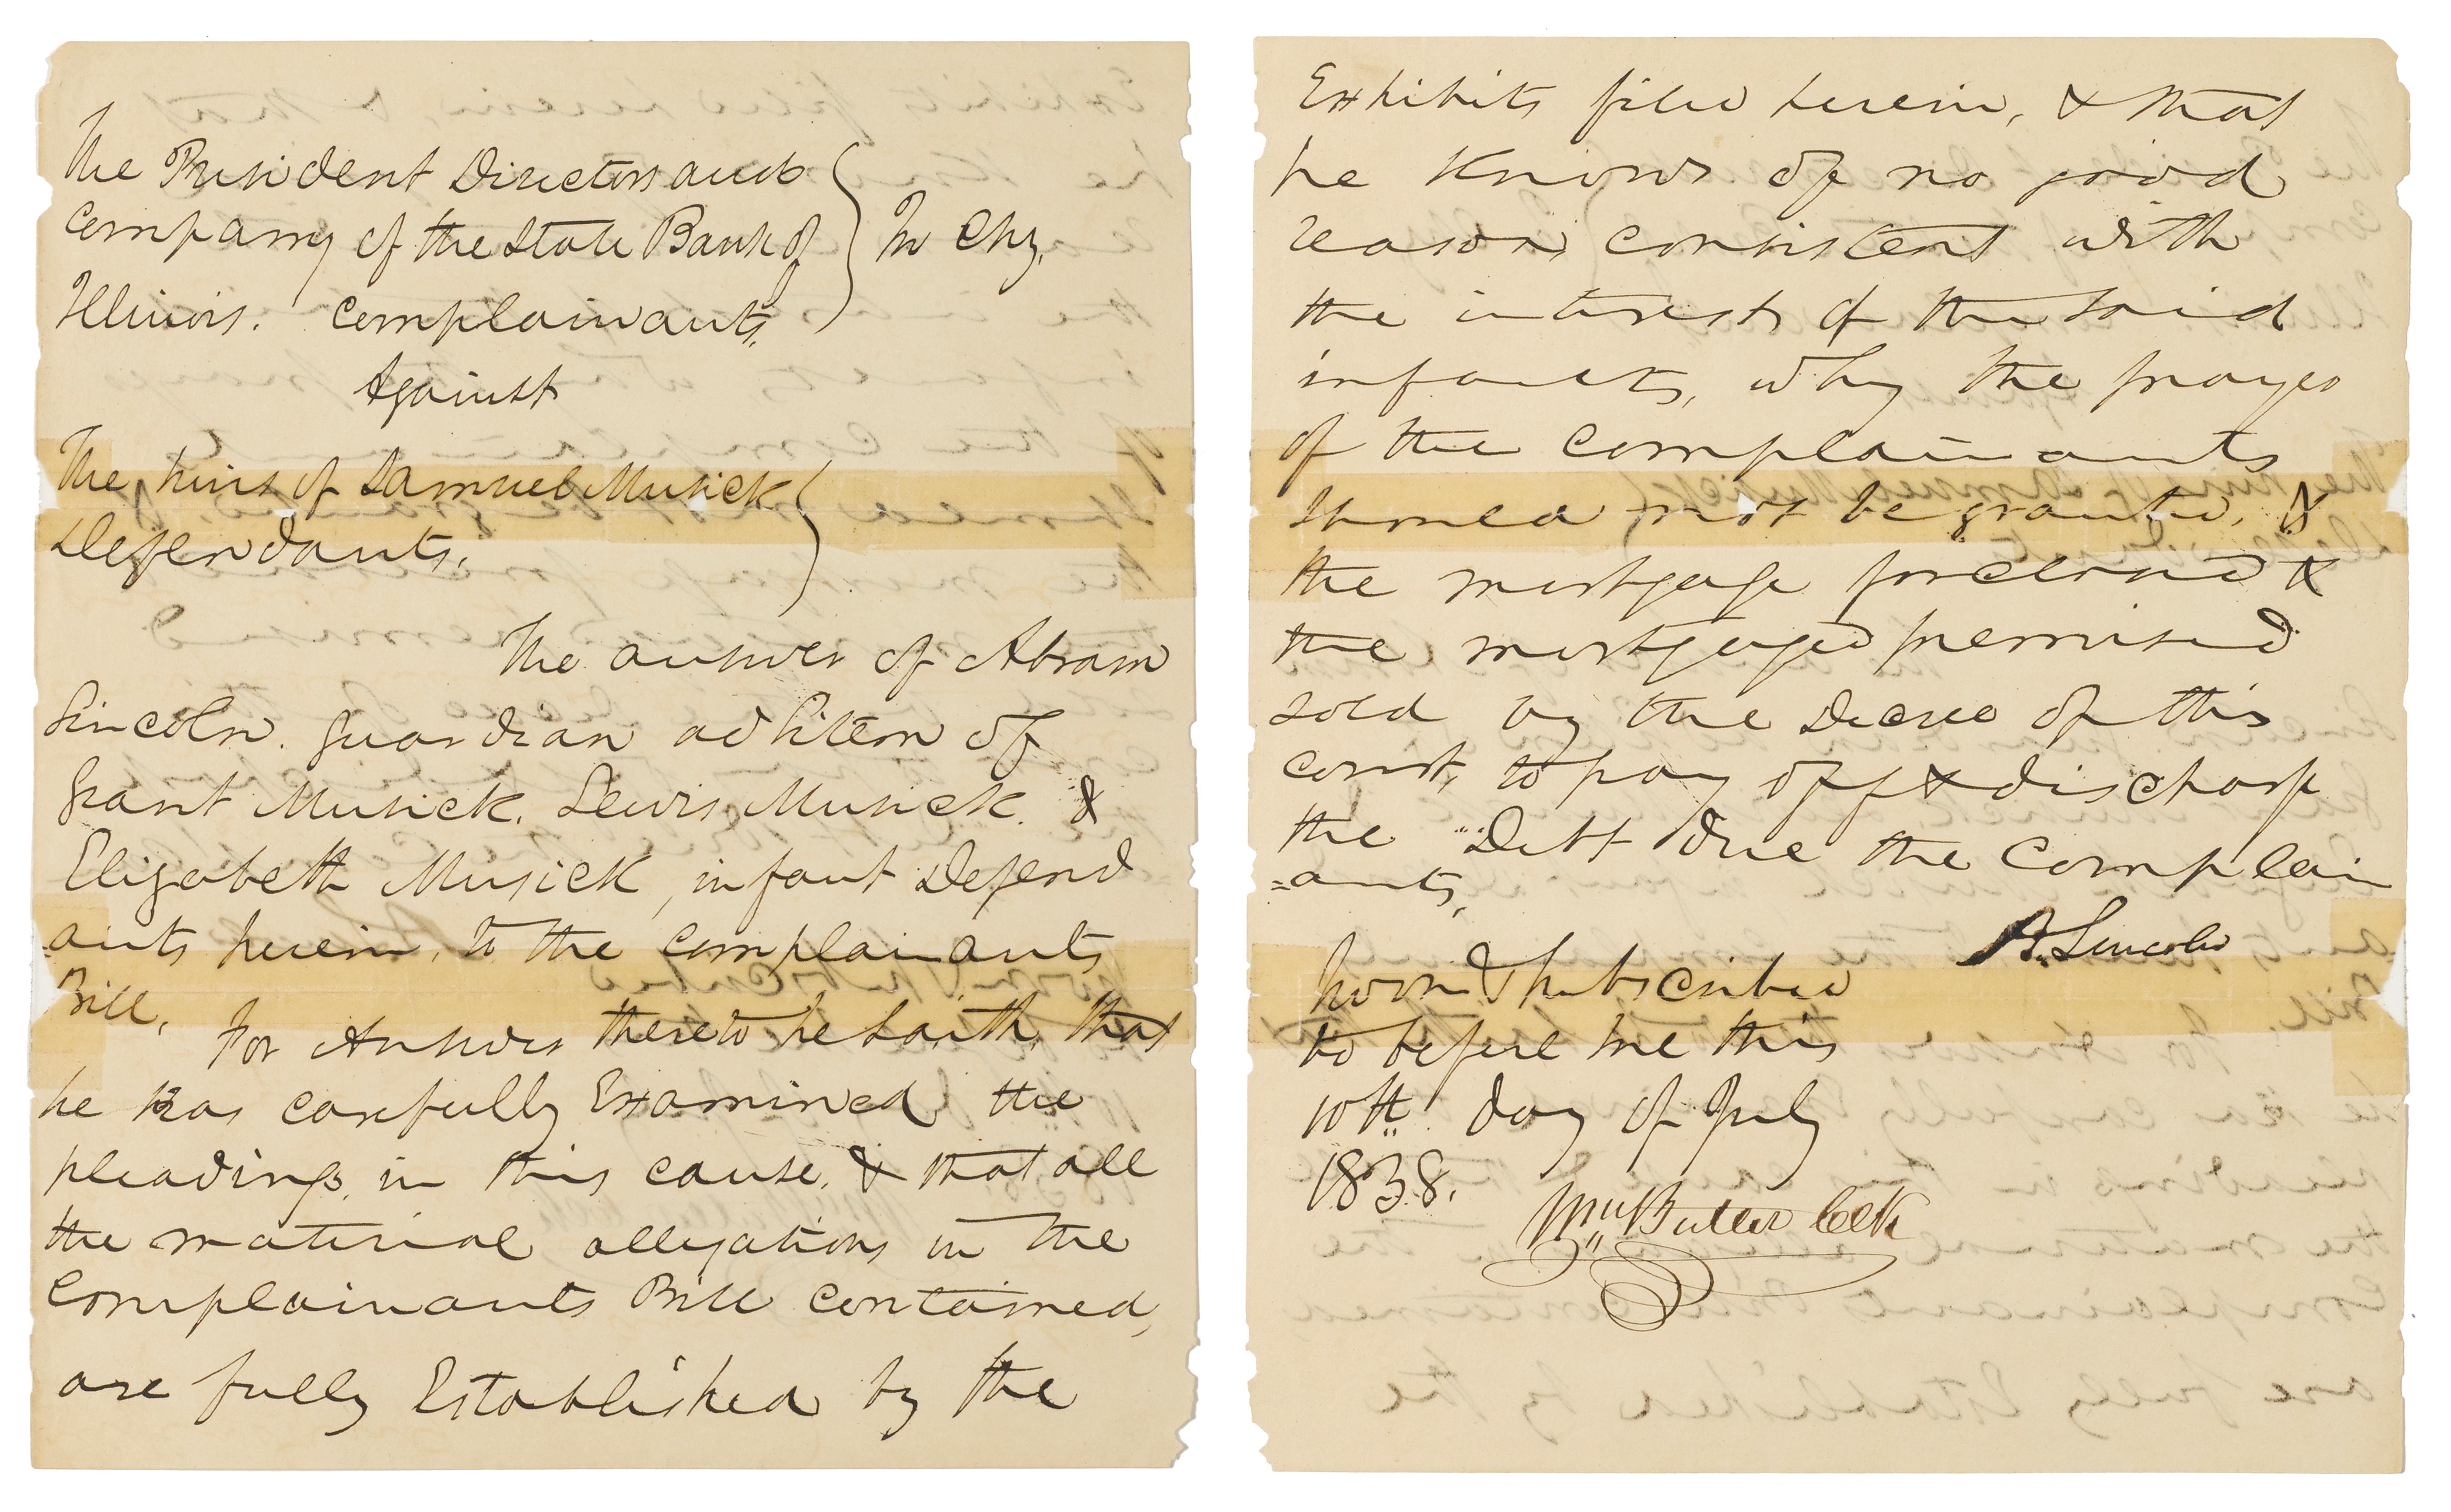 The President Directors and
Company of the State Bank of
Illinois. Complainants,
In Chy.
Against
The heirs of Samuel Musick
Defendants.
The answer of Abram
Lincoln. guardian ad litem of
Grant Musick. Lewis Musick. &
Elizabeth Musick, infant Defend
ants herein, to the complainants
Bill. For Answer thereto he saith, that
he has carefully Examined the
pleadings, in this cause, & that all
the material allegations in the
Complainants Bill contained,
are fully Established by the
Exhibits filed herein, & that
he knows of no good
reason consistent with
the interests of the said
infants, why the prayer
of the complainants
should not be granted, &
the mortgage foreclosed &
the mortgaged premises
sold by the Decree of this
court, to pay off & discharge
the Debt due the complain
=ants,
A. Lincoln
Sworn & subscribed
to before me this
10th day of July
1838.
Wm Butler Clk